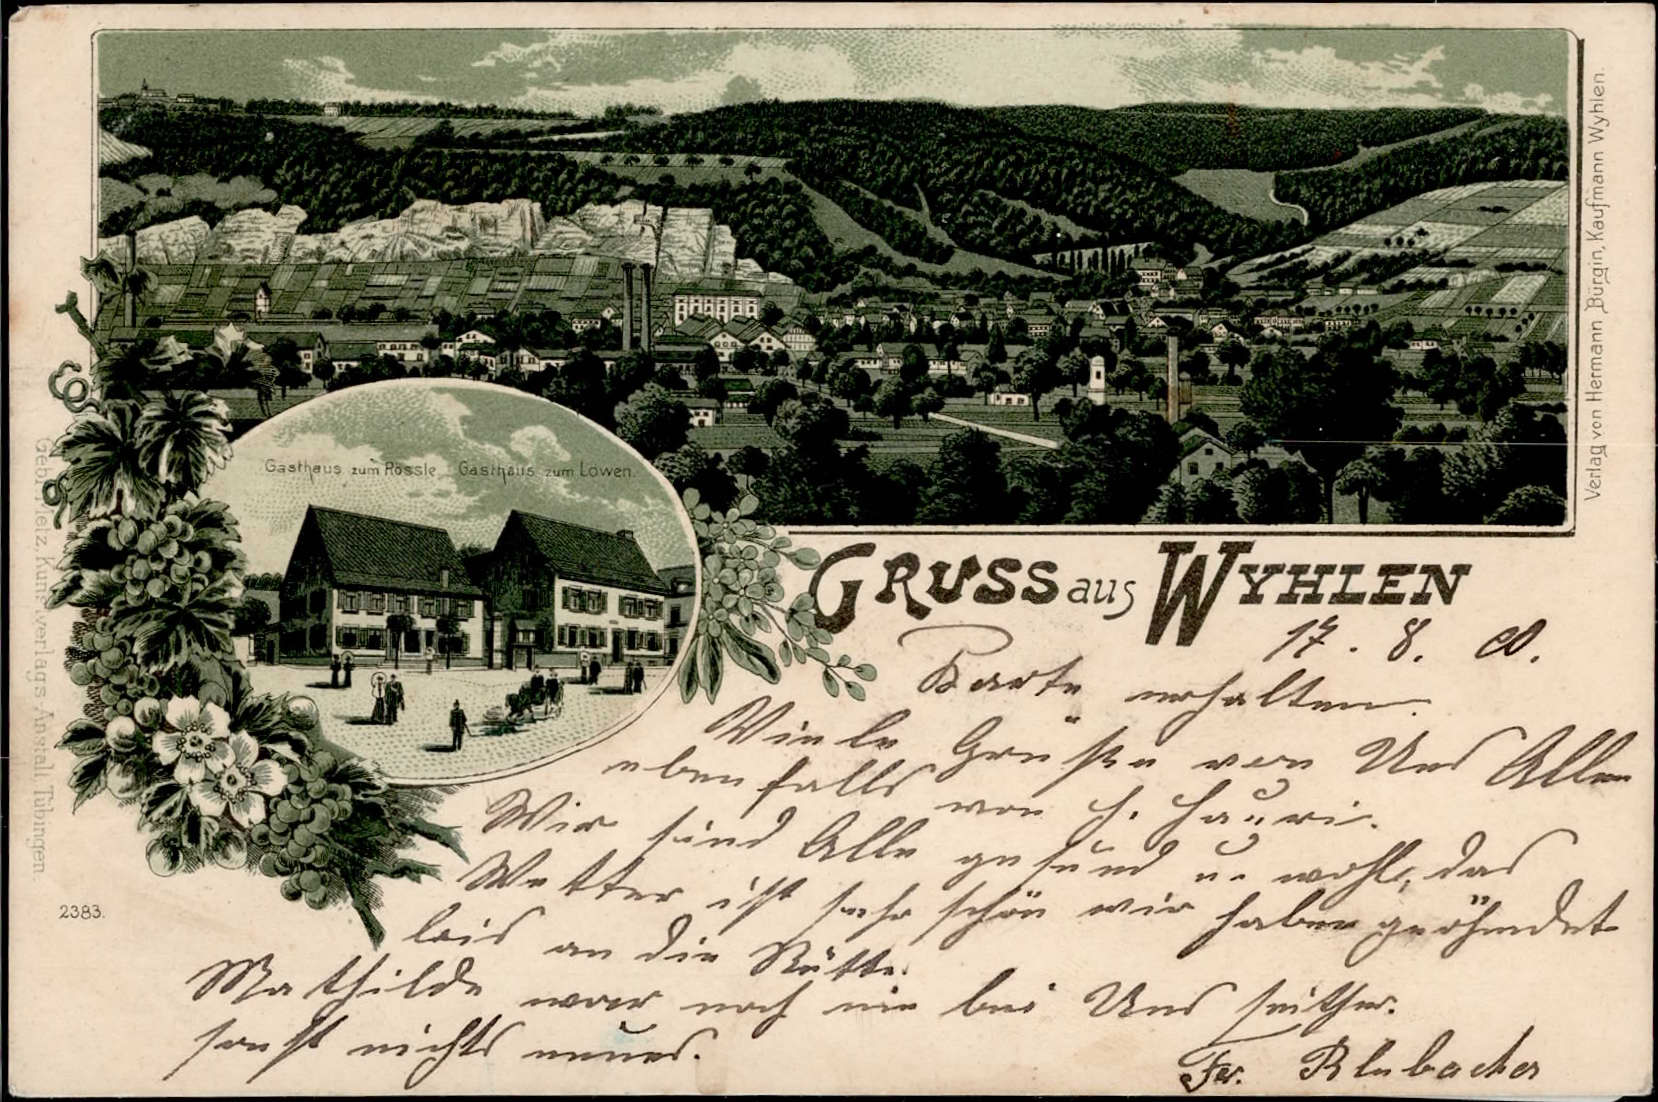 Gasthaus zum Rössle. Gasthaus zum Löwen.
GRUSS aus WYHLEN
17. 8. 00.
Karte erhalten.
Viele Grüße von Uns Allen
ebenfalls von H. Hauri.
Wir sind Alle gesund u. wohl, das
Wetter ist sehr schön wir haben geöhmdet
bis an die Rütte.
Mathilde war noch nie bei Uns seither.
sonst nichts neues.
Fr.
Verlag von Hermann Bürgin, Kaufmann Wyhlen.
Gebr. Metz, Kunstverlags-Anstalt, Tübingen.
2383.